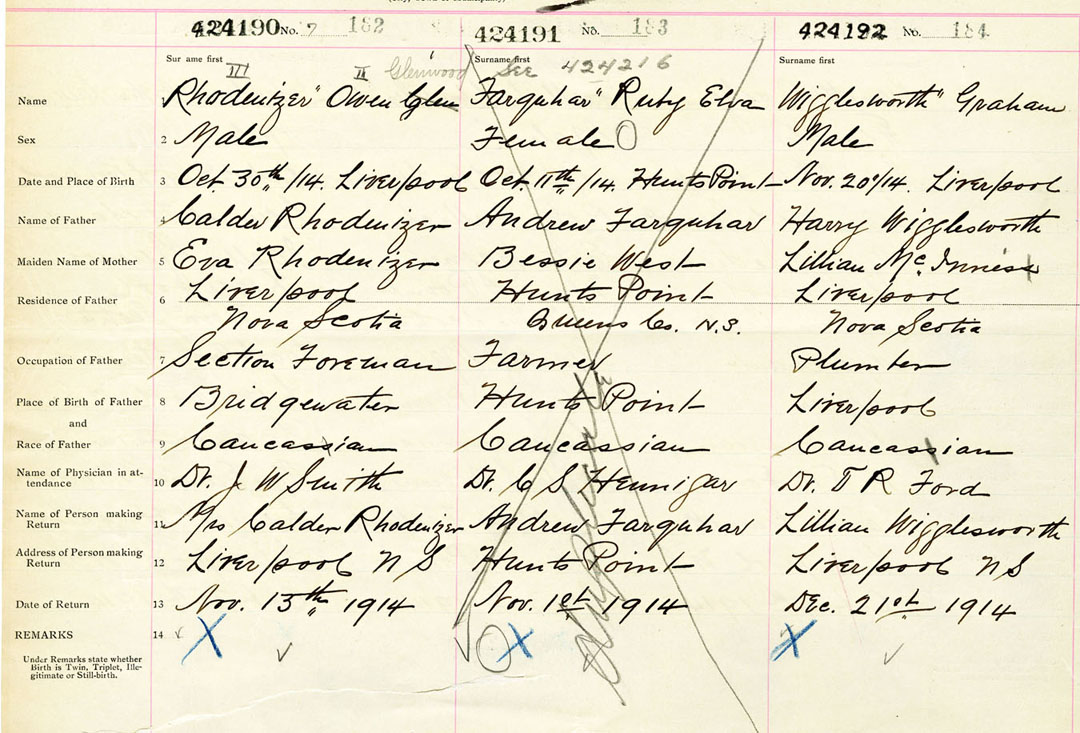 424190 No. 7 182 424191 No. 183 424192 No. 184
Surname first Surname first Surname first
III II Glenwood See 424216
Name Rhodenizer" Owen Glen Farquhar" Ruby Elva Wigglesworth" Graham
Sex 2 Male Female Male
Date and Place of Birth 3 Oct. 30th/14. Liverpool Oct. 11th/14. Hunts Point Nov. 20/14. Liverpool
Name of Father 4 Calder Rhodenizer Andrew Farquhar Harry Wigglesworth
Maiden Name of Mother 5 Eva Rhodenizer Bessie West Lillian McInnis
Residence of Father 6 Liverpool Hunts Point Liverpool
Nova Scotia Queens Co. N.S. Nova Scotia
Occupation of Father 7 Section Foreman Farmer Plumber
Place of Birth of Father 8 Bridgewater Hunts Point Liverpool
and
Race of Father 9 Caucassian Caucassian Caucassian
Name of Physician in at-
tendance 10 Dr. J W Smith Dr. C S Hennigar Dr. T R Ford
Name of Person making
Return 11 Mrs Calder Rhodenizer Andrew Farquhar Lillian Wigglesworth
Address of Person making
Return 12 Liverpool N S Hunts Point Liverpool NS
Date of Return 13 Nov. 13th 1914 Nov. 1st 1914 Dec. 21st 1914
REMARKS 14 X X X
Under Remarks state whether
Birth is Twin, Triplet, Ille-
gitimate or Still-birth.
Duplicate